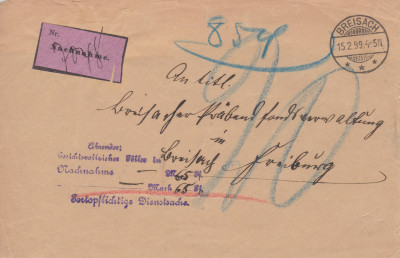 854
BREISACH
15.2.99.4-5N.
Nr.
Nachnahme.
An titl.
Breisacher Präbendfondsverwaltung
in
Breisach Freiburg
Absender:
Gerichtsvollzieher Säller in
Nachnahme — M 65 Pf.
— Mark 65 Pf.
Portopflichtige Dienstsache.
20